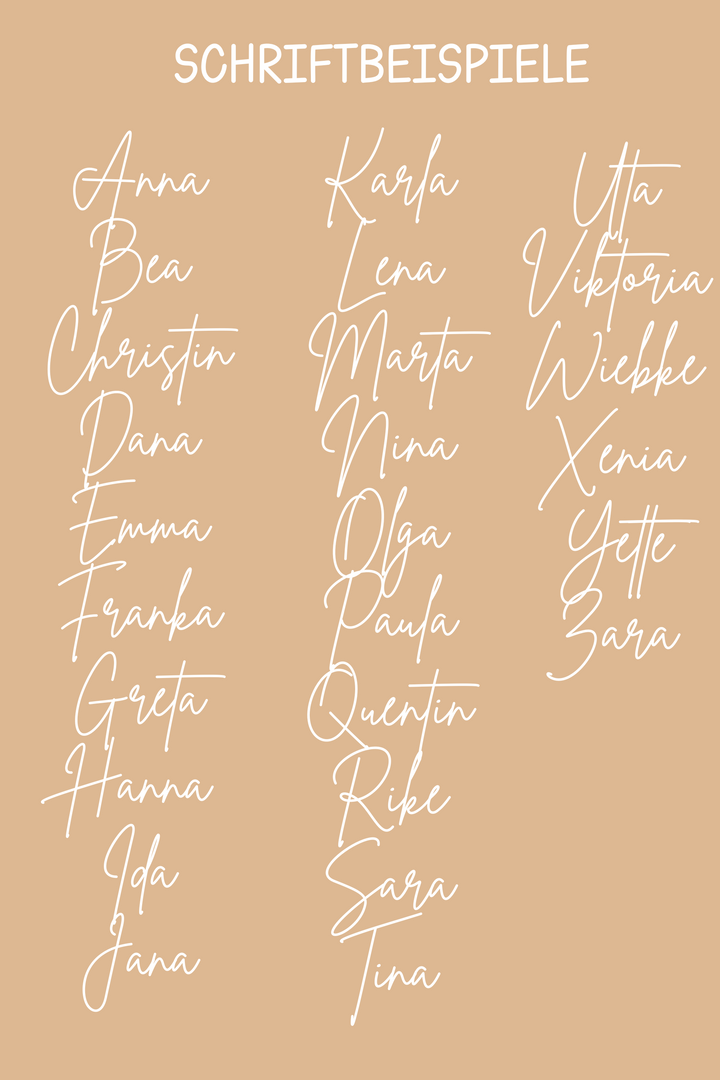 SCHRIFTBEISPIELE
Anna
Bea
Christin
Dana
Emma
Franka
Greta
Hanna
Ida
Jana
Karla
Lena
Marta
Nina
Olga
Paula
Quentin
Rike
Sara
Tina
Uta
Viktoria
Wiebke
Xenia
Yette
Zara